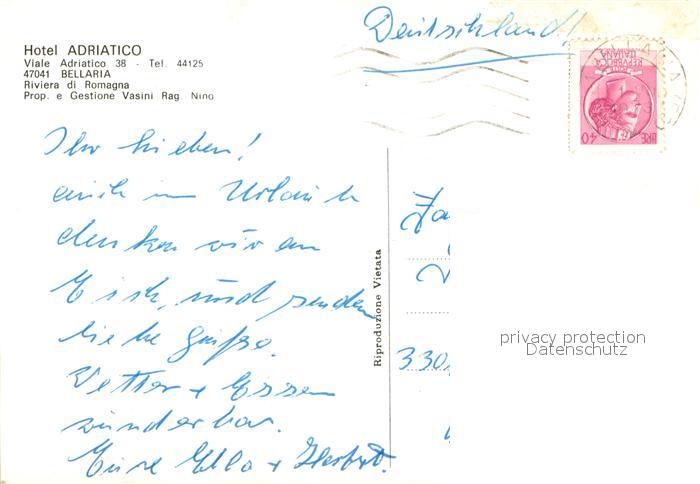 Hotel ADRIATICO
Viale Adriatico 38 - Tel. 44125
47041 BELLARIA
Riviera di Romagna
Prop. e Gestione Vasini Rag. Nino
Deutschland!
REPVBBLICA
ITALIANA
LIRE 40
Ihr Lieben!
auch im Urlaub
denken wir an
Euch, und senden
liebe Grüße.
Wetter + Essen
wunderbar.
Eure Ella + Herbert.
Riproduzione Vietata
330
privacy protection
Datenschutz